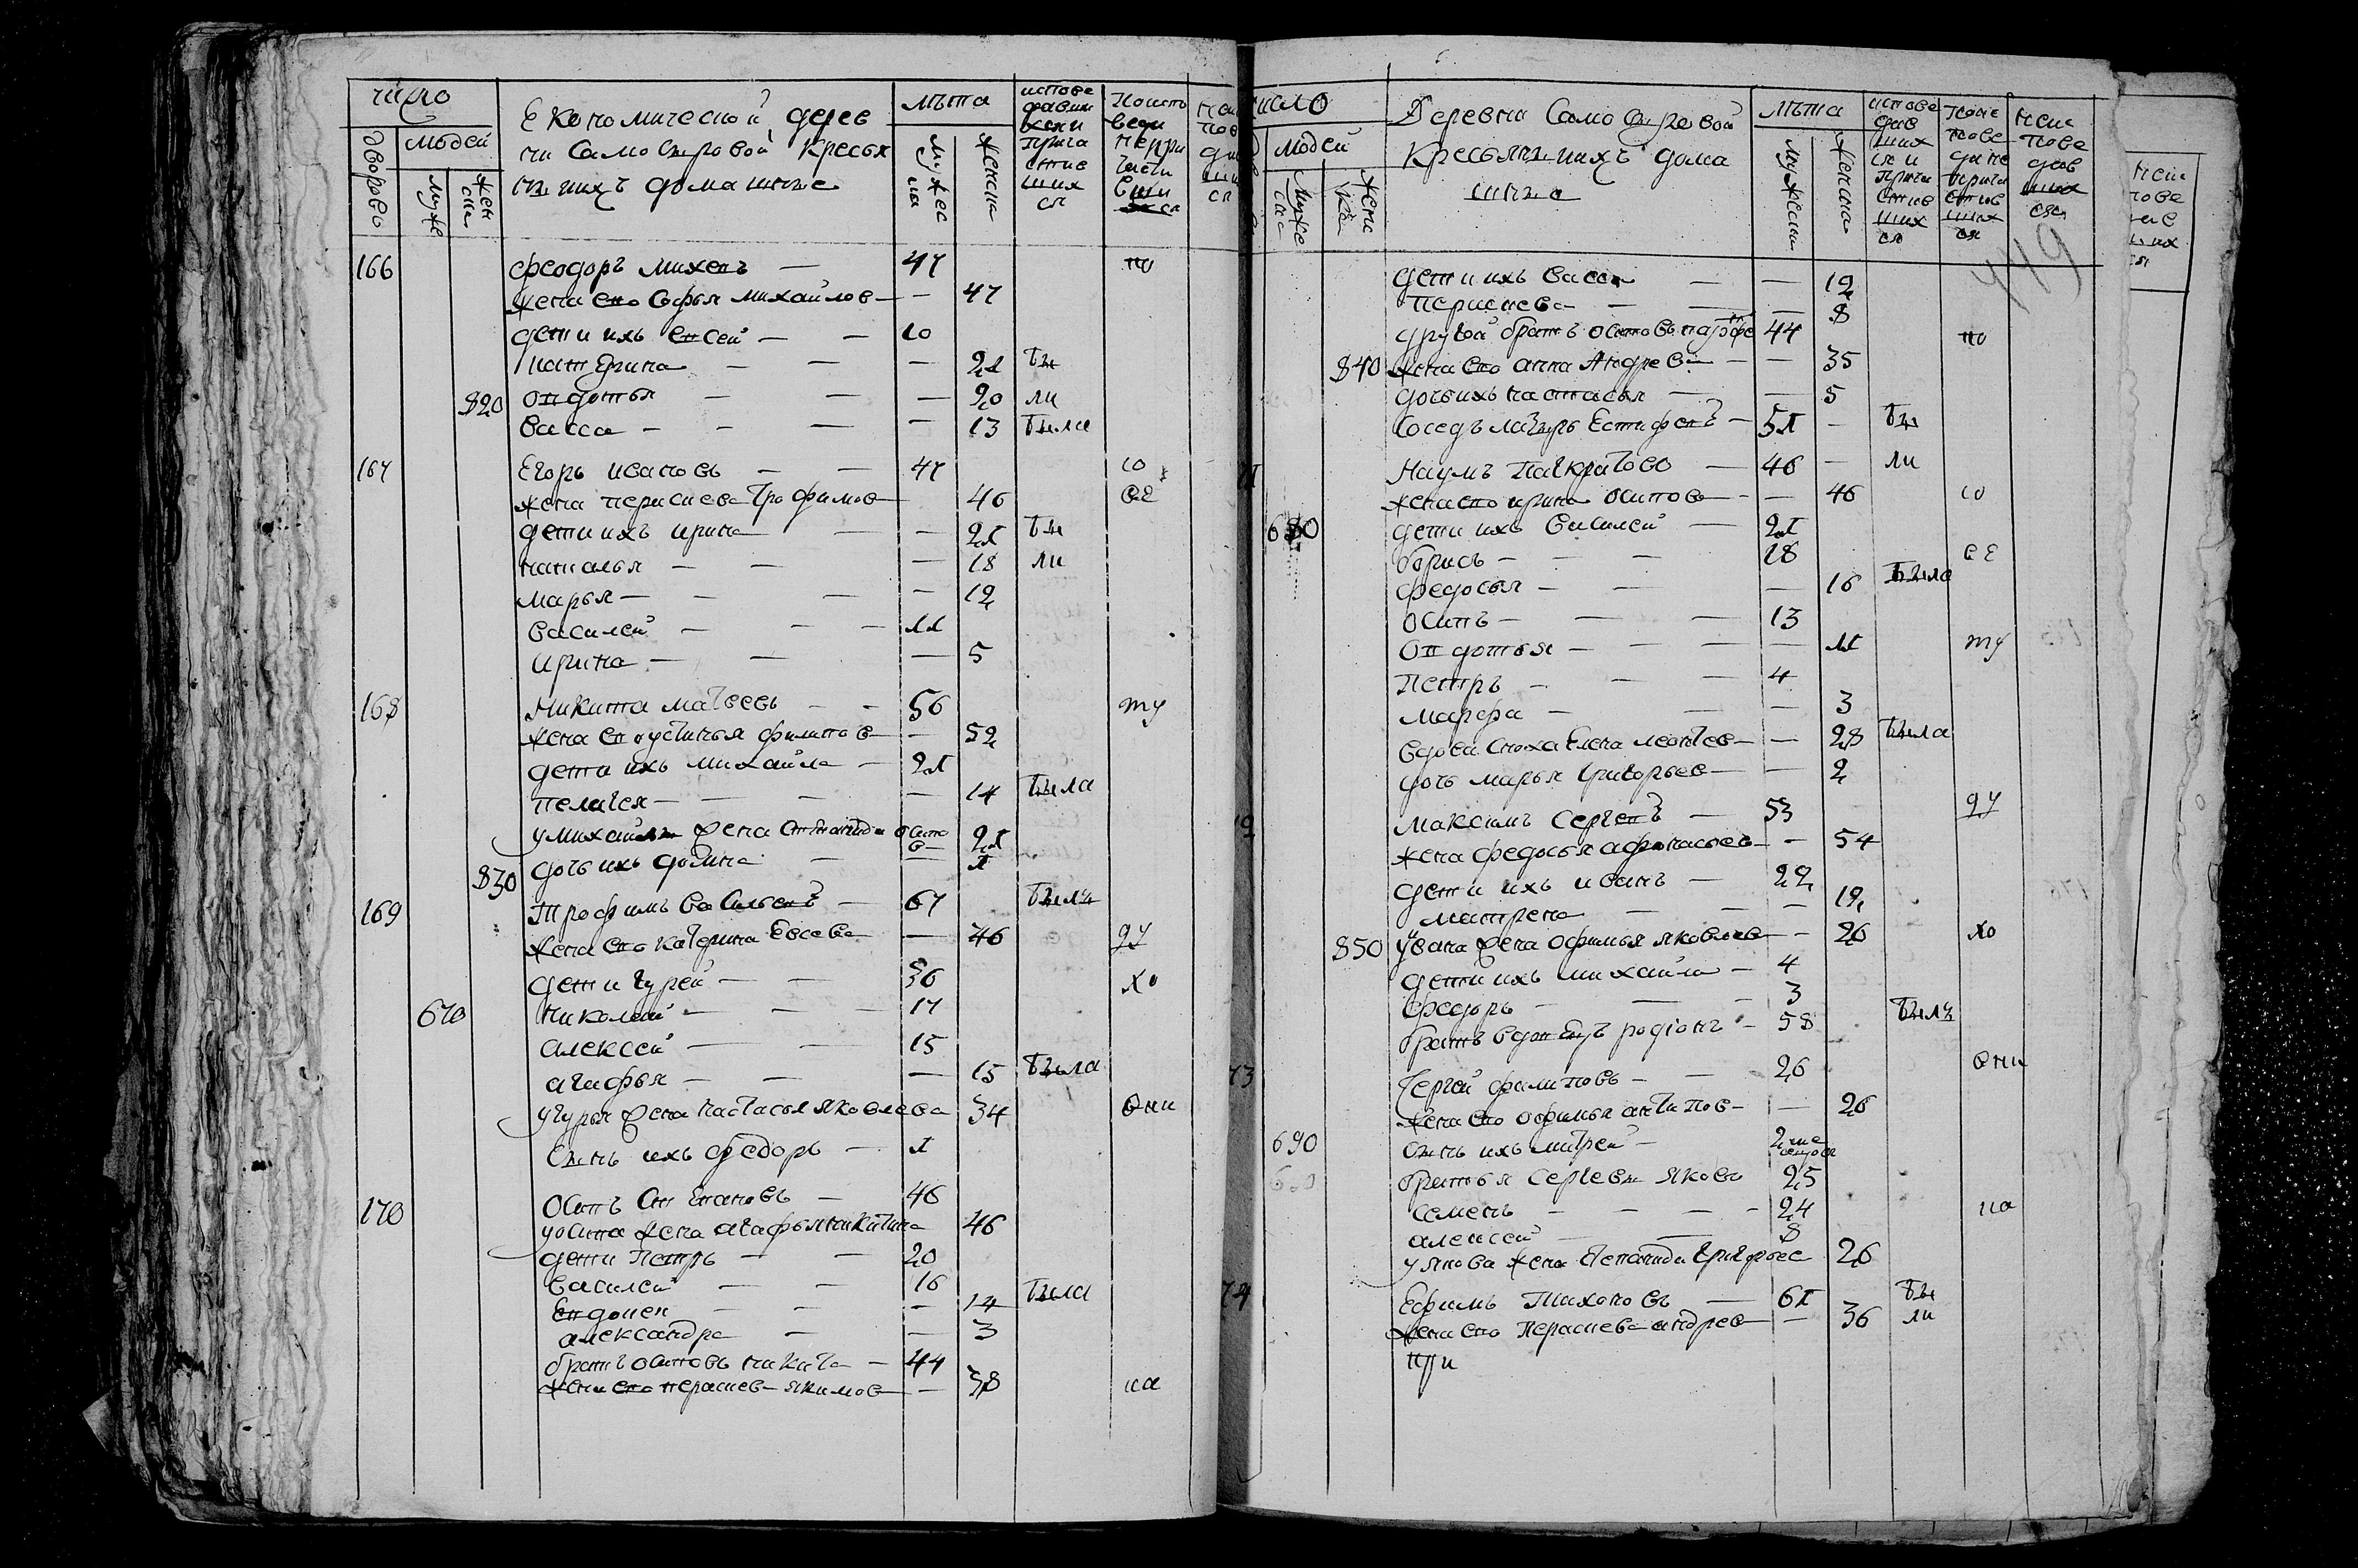 число
Економической дерев
ни Самосыровой кресья
нъ и ихъ домашние
дворовъ
людей
муже
жен
ска
лѣта
мужес
ка
женска
испове
давши
хся и
прича
стив
ших
ся
166 Феодоръ михевъ — 47 по
жена ево Софья михаилов — — 47
дети ихъ евсей — — 10
катерина — — — 21 бы
820 овдотья — — — 20 ли
васса — — — — 13 была
167 Егоръ ивановъ — — 47 со
жена перасиева Трофимов 46 ве
дети ихъ ирина — — 21 бы
наталья — — — 18 ли
марья — — — — 12
василей — — — 11
ирина — — — 5
168 Никита матвеевъ — — 56 ту
жена ево устинья филипов — 52
дети ихъ михаила — 21
пелагея — — — — 14 была
у михаилы жена степанида осипо
в — 21
830 дочь ихъ домна — — 1
169 Трофимъ васильевъ — 67 былъ
жена ево катерина Евсева — 46 ду
дети гурей — — 36 хо
670 николай — — — 17
алексей — — 15
агафья — — — 15 была
у гурья жена настасья яковлева 34 вни
Сынъ ихъ федоръ — 1
170 Осипъ степановъ — 46
у осипа жена агафья никитина 46
дети Петръ — — 20
василей — — 16
евдокея — — — 14 была
александра — — 3
братъ осиповъ никита — 44
жена ево перасиев — якимов — — 38 ка
число
Деревни Самосыревой
кресьянъ и ихъ дома
шние
людей
муже
ска
женс
ка
лѣта
мужески
женска
испове
дав
ших
ся и
прича
стив
ших
ся
неис
пове
дав
ших
ся
419
дети ихъ васса — — 12
перасиева — — — 8
другой братъ осиповъ парфе 44 по
840 жена ево анна Андрев — — 35
дочь ихъ настасья — — 5
Соседъ лазырь Естифевъ — 51 — бы
Наумъ Панкратово — 46 — ли
жена ево ирина осипова — — 46 со
680 дети ихъ василей — 21
борисъ — — — 18 ве
федосья — — — 16 была
осипъ — — — 13
Овдотья — — — — 11 ту
Петръ — — — 4
марфа — — — 3
вдова сноха Елена леонтев — — 28 была
дочь марья григорьев — — 2
максимъ сергевъ — 53 ду
жена федосья афонасьев — — 54
дети ихъ иванъ — 22
матрена — — — 12
850 у ивана жена офимья яковлев — — 26 хо
дети ихъ михаила — 4
федоръ — — — 3
братъ вдовецъ родионъ — 58 былъ
73 Сергей филиповъ — — 26 вни
жена ево офимья антипов — — 26
690 сынъ ихъ митрей — 2
братья сергевы яковъ 25
семенъ — — — — 24 ка
алексей — — 8
у якова жена степанида григорьев 26
74 Ефимъ Тихоновъ — 61 бы
жена ево Перасиева андрев — — 36 ли
при